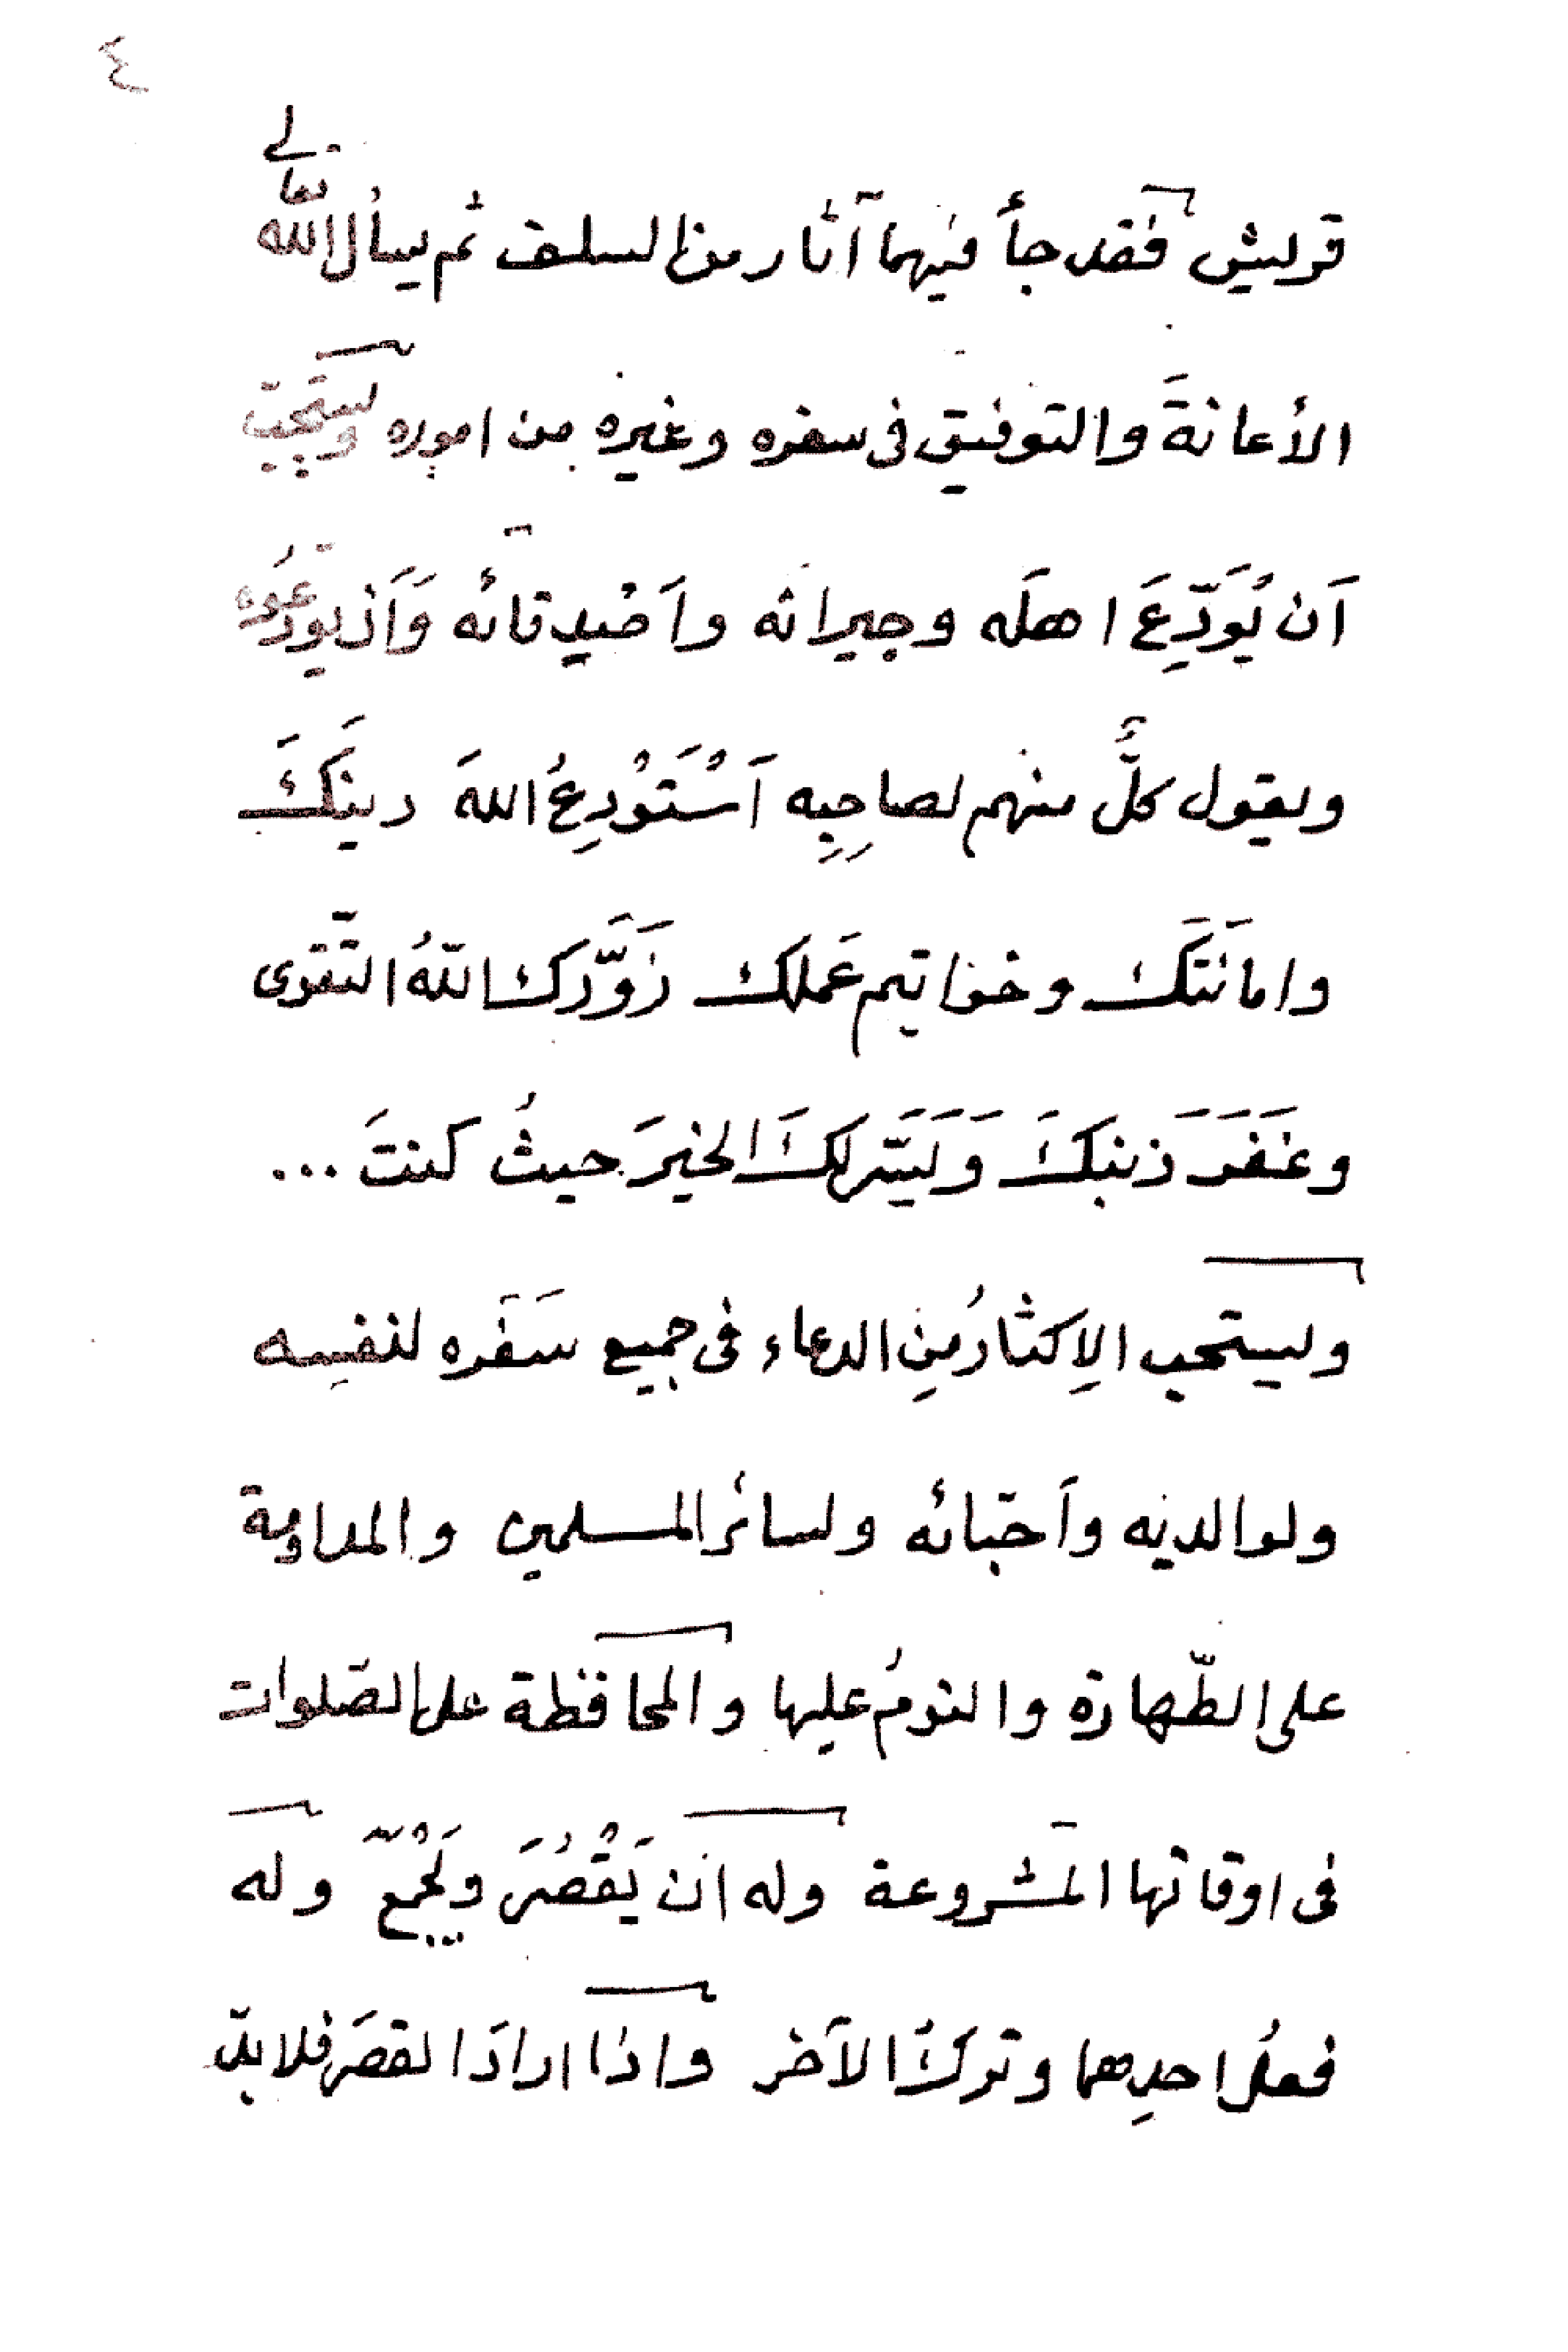 ٤
قريش فقد جأ فيهما آثار من السلف ثم يسأل الله تعالى
الأعانةَ والتوفيق فى سفره وغيره من اموره ويستحب
اَن يُوَدِّعَ اهلَه وجيرانه واَصْدِقائه وَاَن يودّعُوه
ويقول كلٌّ منهم لصاحِبِه اَسْتَوْدِعُ اللهَ دينَكَ
وامانَتَكَ وخواتيم عَملك زَوَّدَك اللهُ التّقوى
وغَفَرَ ذنبَكَ وَيَسَّرَ لكَ الخيرَ حيثُ كنتَ ...
ويستحب الاِكثارُ مِنِ الدعاء فى جميع سَفَره لنفسِه
ولوالديه واَحبّائه ولسائر المسلمين والمداومة
على الطّهارة والنومُ عليها والمحافظة على الصّلوات
فى اوقاتها المشروعة وله ان يَقْصُرَ ويَجْمَعَ وله
فعلُ احدِهما وتركُ الآخر واذا ارادَ القصرَ فلا بدّ